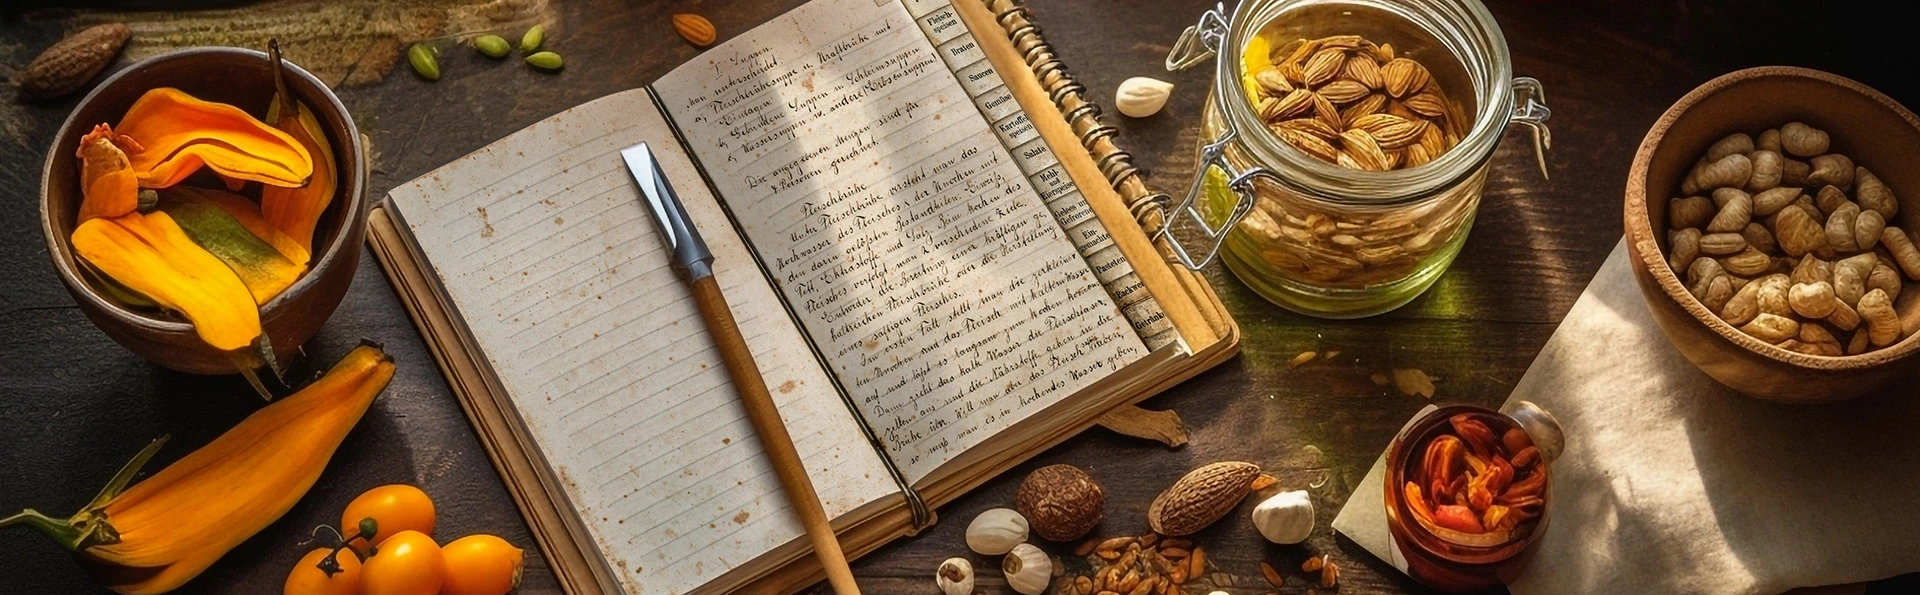 I Suppen.
Man unterscheidet:
a, Fleischbrühsuppe u. Kraftbrühe mit
Einlagen.
b, Gebundene Suppen u. Schleimsuppen
c, Wassersuppen u. andere (Obstsuppen)
Die angegebenen Mengen sind für
4 Personen gerechnet.
Fleischbrühe
Unter Fleischbrühe versteht man das
Kochwasser des Fleisches u der Knochen mit
den darin gelösten Bestandteilen: Eiweiß,
Fett, Extraktstoffe und Salz. Beim Kochen des
Fleisches verfolgt man 2 verschiedene Ziele.
Entweder die Bereitung einer kräftigen ge-
haltreichen Fleischbrühe oder die Herstellung
eines saftigen Fleisches.
Im ersten Fall stellt man die zerkleiner-
ten Knochen und das Fleisch mit kaltem Wasser
auf und läßt es langsam zum Kochen kommen.
Dann zieht das kalte Wasser die Fleischfaser,
zellen aus und die Nährstoffe gehen in die
Brühe über. Will man aber das Fleisch haben,
so muß man es in kochendes Wasser geben,
Fleisch-
speisen
Braten
Saucen
Gemüse
Kartoffel
speisen
Salate
Mehl-
und
Eierspeise
Gelees u
Gefrorene
Ein-
gemachte
Pasteten
Backwer
Getränke